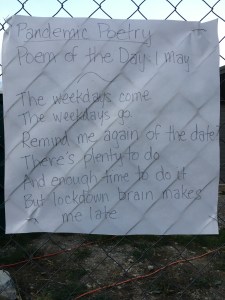 Pandemic Poetry
Poem of the Day 1 May
The weekdays come
The weekdays go
Remind me again of the date?
There's plenty to do
And enough time to do it
But lockdown brain makes
me late